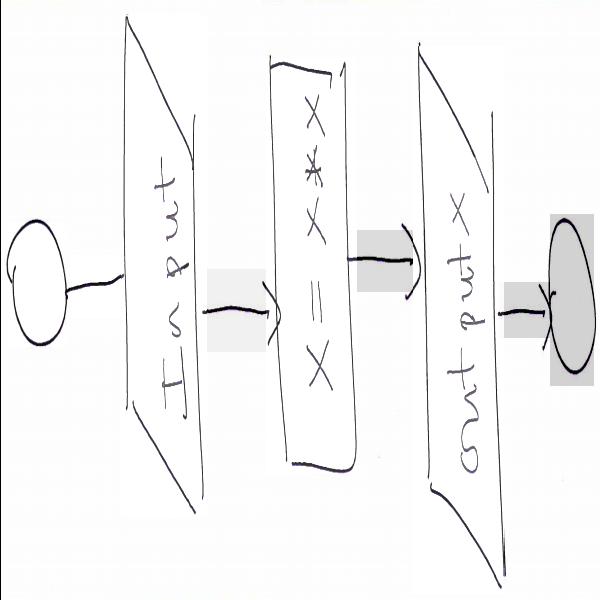 Input
X = X * X
output X